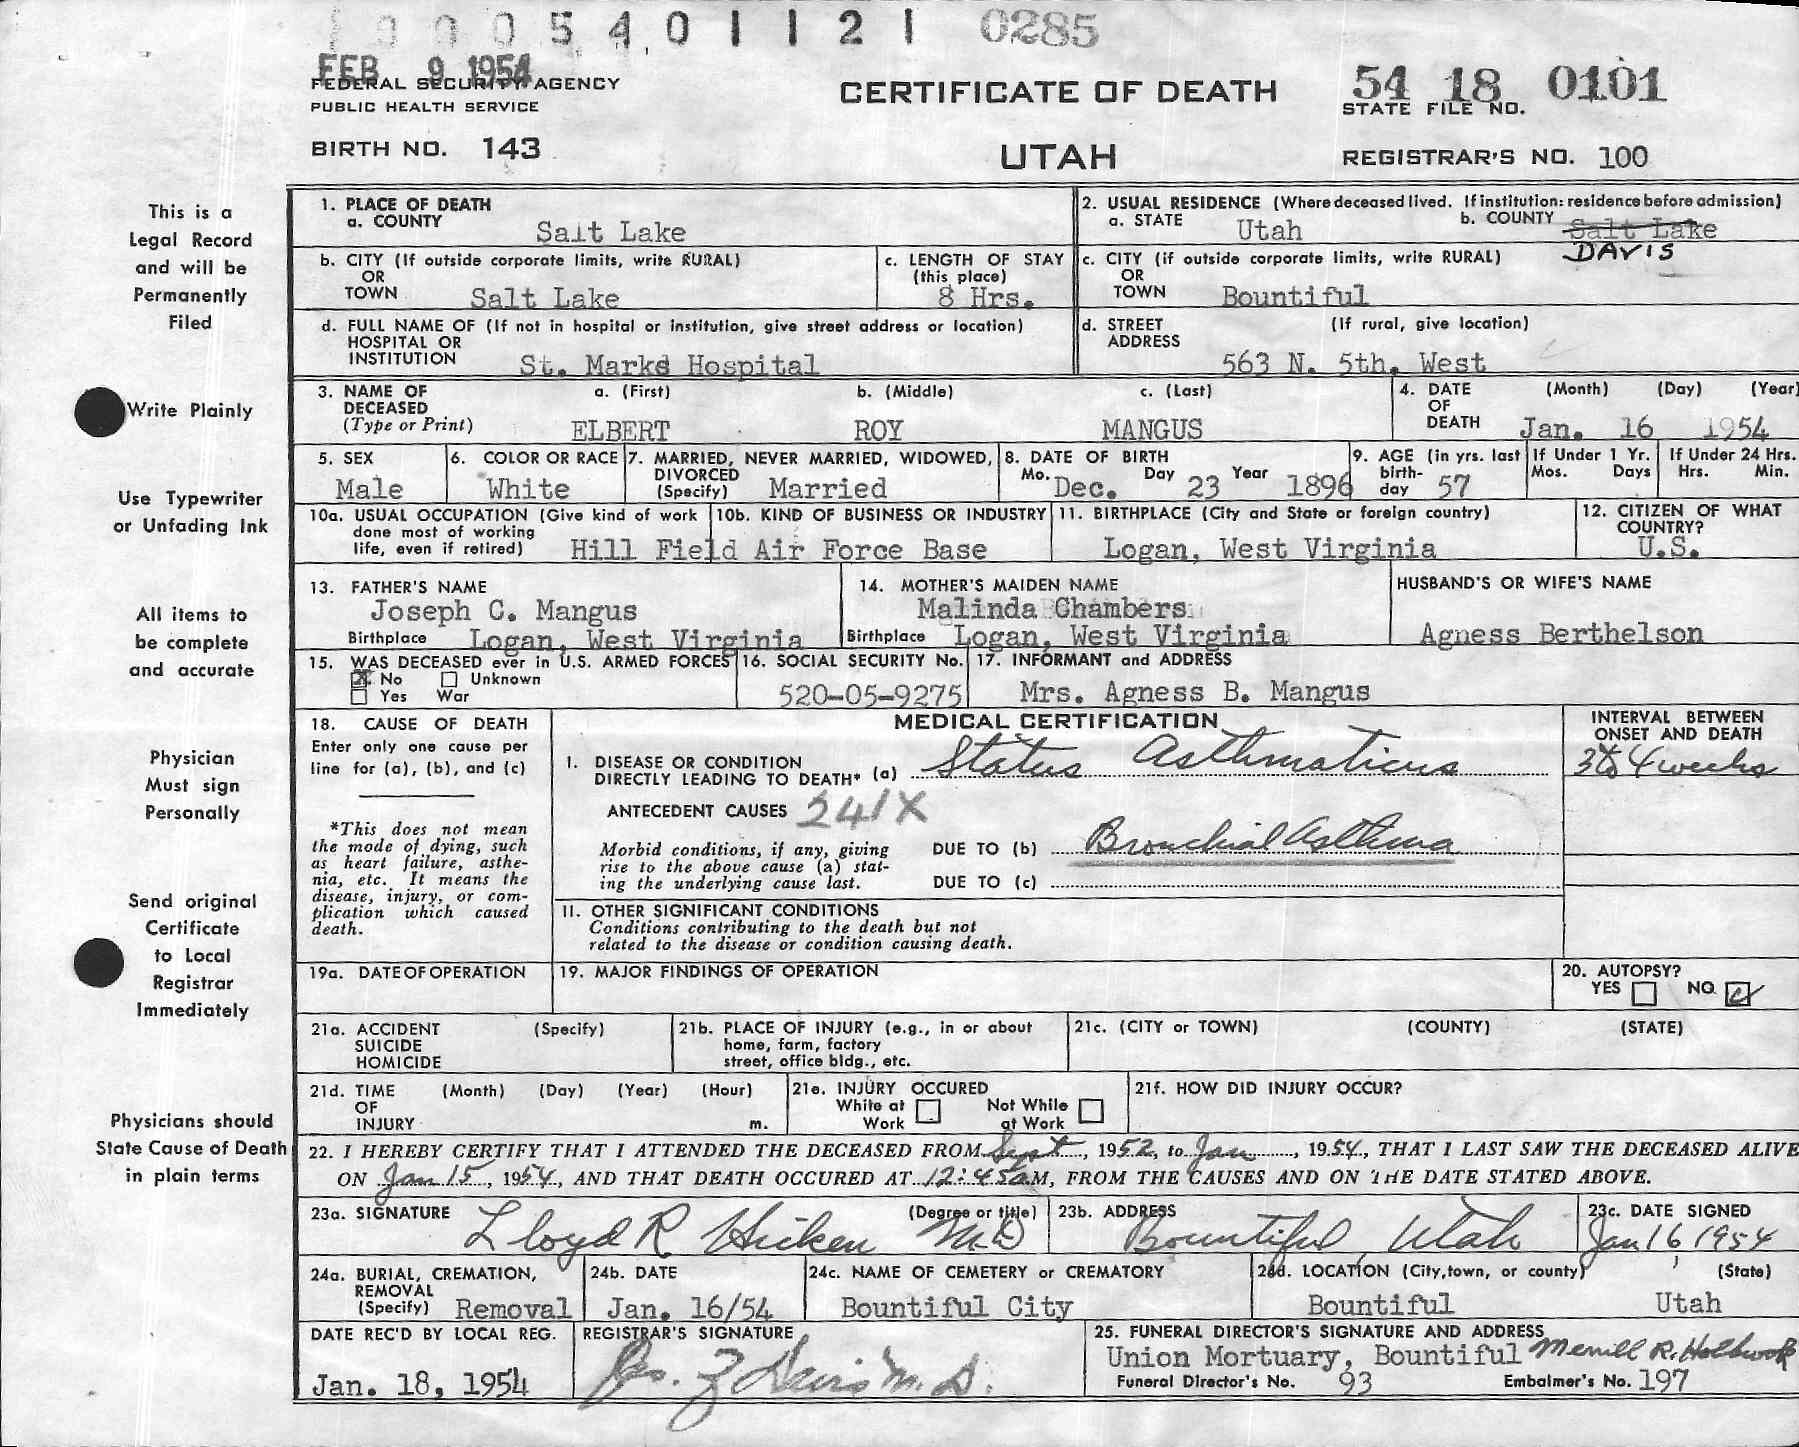 1 0 0 0 5 4 0 1 1 2 1 0285
FEB 9 1954
FEDERAL SECURITY AGENCY
PUBLIC HEALTH SERVICE
CERTIFICATE OF DEATH
54 18 0101
STATE FILE NO.
BIRTH NO. 143
UTAH
REGISTRAR'S NO. 100
This is a
Legal Record
and will be
Permanently
Filed
Write Plainly
Use Typewriter
or Unfading Ink
All items to
be complete
and accurate
Physician
Must sign
Personally
Send original
Certificate
to Local
Registrar
Immediately
Physicians should
State Cause of Death
in plain terms
1. PLACE OF DEATH
a. COUNTY Salt Lake
2. USUAL RESIDENCE (Where deceased lived. If institution: residence before admission)
a. STATE Utah b. COUNTY Salt Lake
DAVIS
b. CITY (If outside corporate limits, write RURAL)
OR
TOWN Salt Lake
c. LENGTH OF STAY
(this place)
8 Hrs.
c. CITY (if outside corporate limits, write RURAL)
OR
TOWN Bountiful
d. FULL NAME OF (If not in hospital or institution, give street address or location)
HOSPITAL OR
INSTITUTION St. Marks Hospital
d. STREET (If rural, give location)
ADDRESS
563 N. 5th. West
3. NAME OF a. (First) b. (Middle) c. (Last)
DECEASED
(Type or Print) ELBERT ROY MANGUS
4. DATE (Month) (Day) (Year)
OF
DEATH Jan. 16 1954
5. SEX
Male
6. COLOR OR RACE
White
7. MARRIED, NEVER MARRIED, WIDOWED,
DIVORCED
(Specify) Married
8. DATE OF BIRTH
Mo. Dec. Day 23 Year 1896
9. AGE (in yrs. last
birth-
day 57
If Under 1 Yr.
Mos. Days
If Under 24 Hrs.
Hrs. Min.
10a. USUAL OCCUPATION (Give kind of work
done most of working
life, even if retired)
10b. KIND OF BUSINESS OR INDUSTRY
Hill Field Air Force Base
11. BIRTHPLACE (City and State or foreign country)
Logan, West Virginia
12. CITIZEN OF WHAT
COUNTRY?
U.S.
13. FATHER'S NAME
Joseph C. Mangus
Birthplace Logan, West Virginia
14. MOTHER'S MAIDEN NAME
Malinda Chambers
Birthplace Logan, West Virginia
HUSBAND'S OR WIFE'S NAME
Agness Berthelson
15. WAS DECEASED ever in U.S. ARMED FORCES
X No Unknown
Yes War
16. SOCIAL SECURITY No.
520-05-9275
17. INFORMANT and ADDRESS
Mrs. Agness B. Mangus
18. CAUSE OF DEATH
Enter only one cause per
line for (a), (b), and (c)
*This does not mean
the mode of dying, such
as heart failure, asthe-
nia, etc. It means the
disease, injury, or com-
plication which caused
death.
MEDICAL CERTIFICATION
I. DISEASE OR CONDITION
DIRECTLY LEADING TO DEATH* (a) Status Asthmaticus
ANTECEDENT CAUSES 241X
Morbid conditions, if any, giving
rise to the above cause (a) stat-
ing the underlying cause last.
DUE TO (b) Bronchial Asthma
DUE TO (c)
INTERVAL BETWEEN
ONSET AND DEATH
3 to 4 weeks
II. OTHER SIGNIFICANT CONDITIONS
Conditions contributing to the death but not
related to the disease or condition causing death.
19a. DATE OF OPERATION
19. MAJOR FINDINGS OF OPERATION
20. AUTOPSY?
YES NO
21a. ACCIDENT (Specify)
SUICIDE
HOMICIDE
21b. PLACE OF INJURY (e.g., in or about
home, farm, factory
street, office bldg., etc.
21c. (CITY or TOWN) (COUNTY) (STATE)
21d. TIME (Month) (Day) (Year) (Hour)
OF
INJURY m.
21e. INJURY OCCURED
While at Work
Not While at Work
21f. HOW DID INJURY OCCUR?
22. I HEREBY CERTIFY THAT I ATTENDED THE DECEASED FROM Sept, 1952, to Jan, 1954, THAT I LAST SAW THE DECEASED ALIVE
ON Jan 15, 1954, AND THAT DEATH OCCURED AT 12:45 a M, FROM THE CAUSES AND ON THE DATE STATED ABOVE.
23a. SIGNATURE (Degree or title)
Lloyd R Hicken M.D
23b. ADDRESS
Bountiful, Utah
23c. DATE SIGNED
Jan 16, 1954
24a. BURIAL, CREMATION,
REMOVAL
(Specify) Removal
24b. DATE
Jan. 16/54
24c. NAME OF CEMETERY or CREMATORY
Bountiful City
24d. LOCATION (City, town, or county) (State)
Bountiful Utah
DATE REC'D BY LOCAL REG.
Jan. 18, 1954
REGISTRAR'S SIGNATURE
Jos. Z Davis M. D.
25. FUNERAL DIRECTOR'S SIGNATURE AND ADDRESS
Union Mortuary, Bountiful Merrill R. Holbrook
Funeral Director's No. 93 Embalmer's No. 197